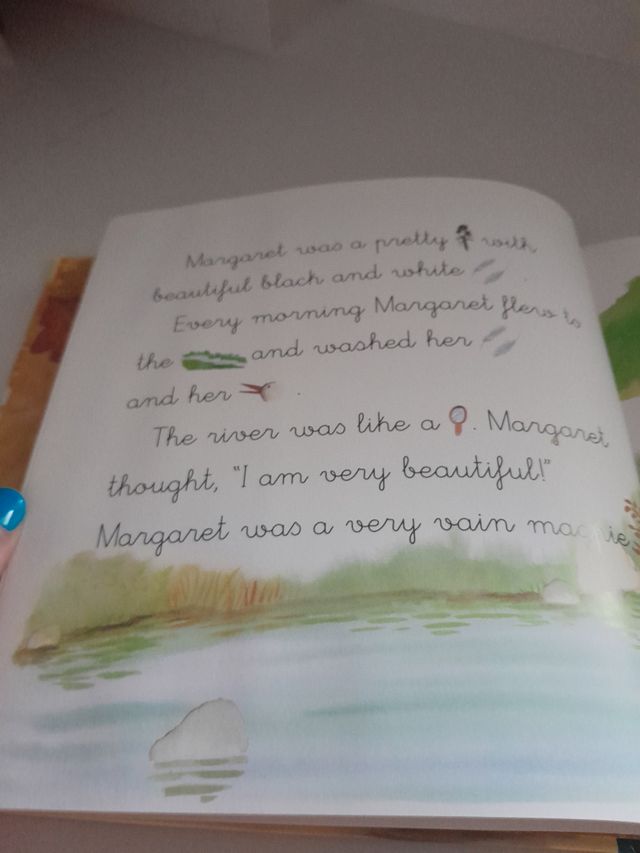 Margaret was a pretty with
beautiful black and white
Every morning Margaret flew to
the and washed her
and her .
The river was like a . Margaret
thought, "I am very beautiful!"
Margaret was a very vain magpie.